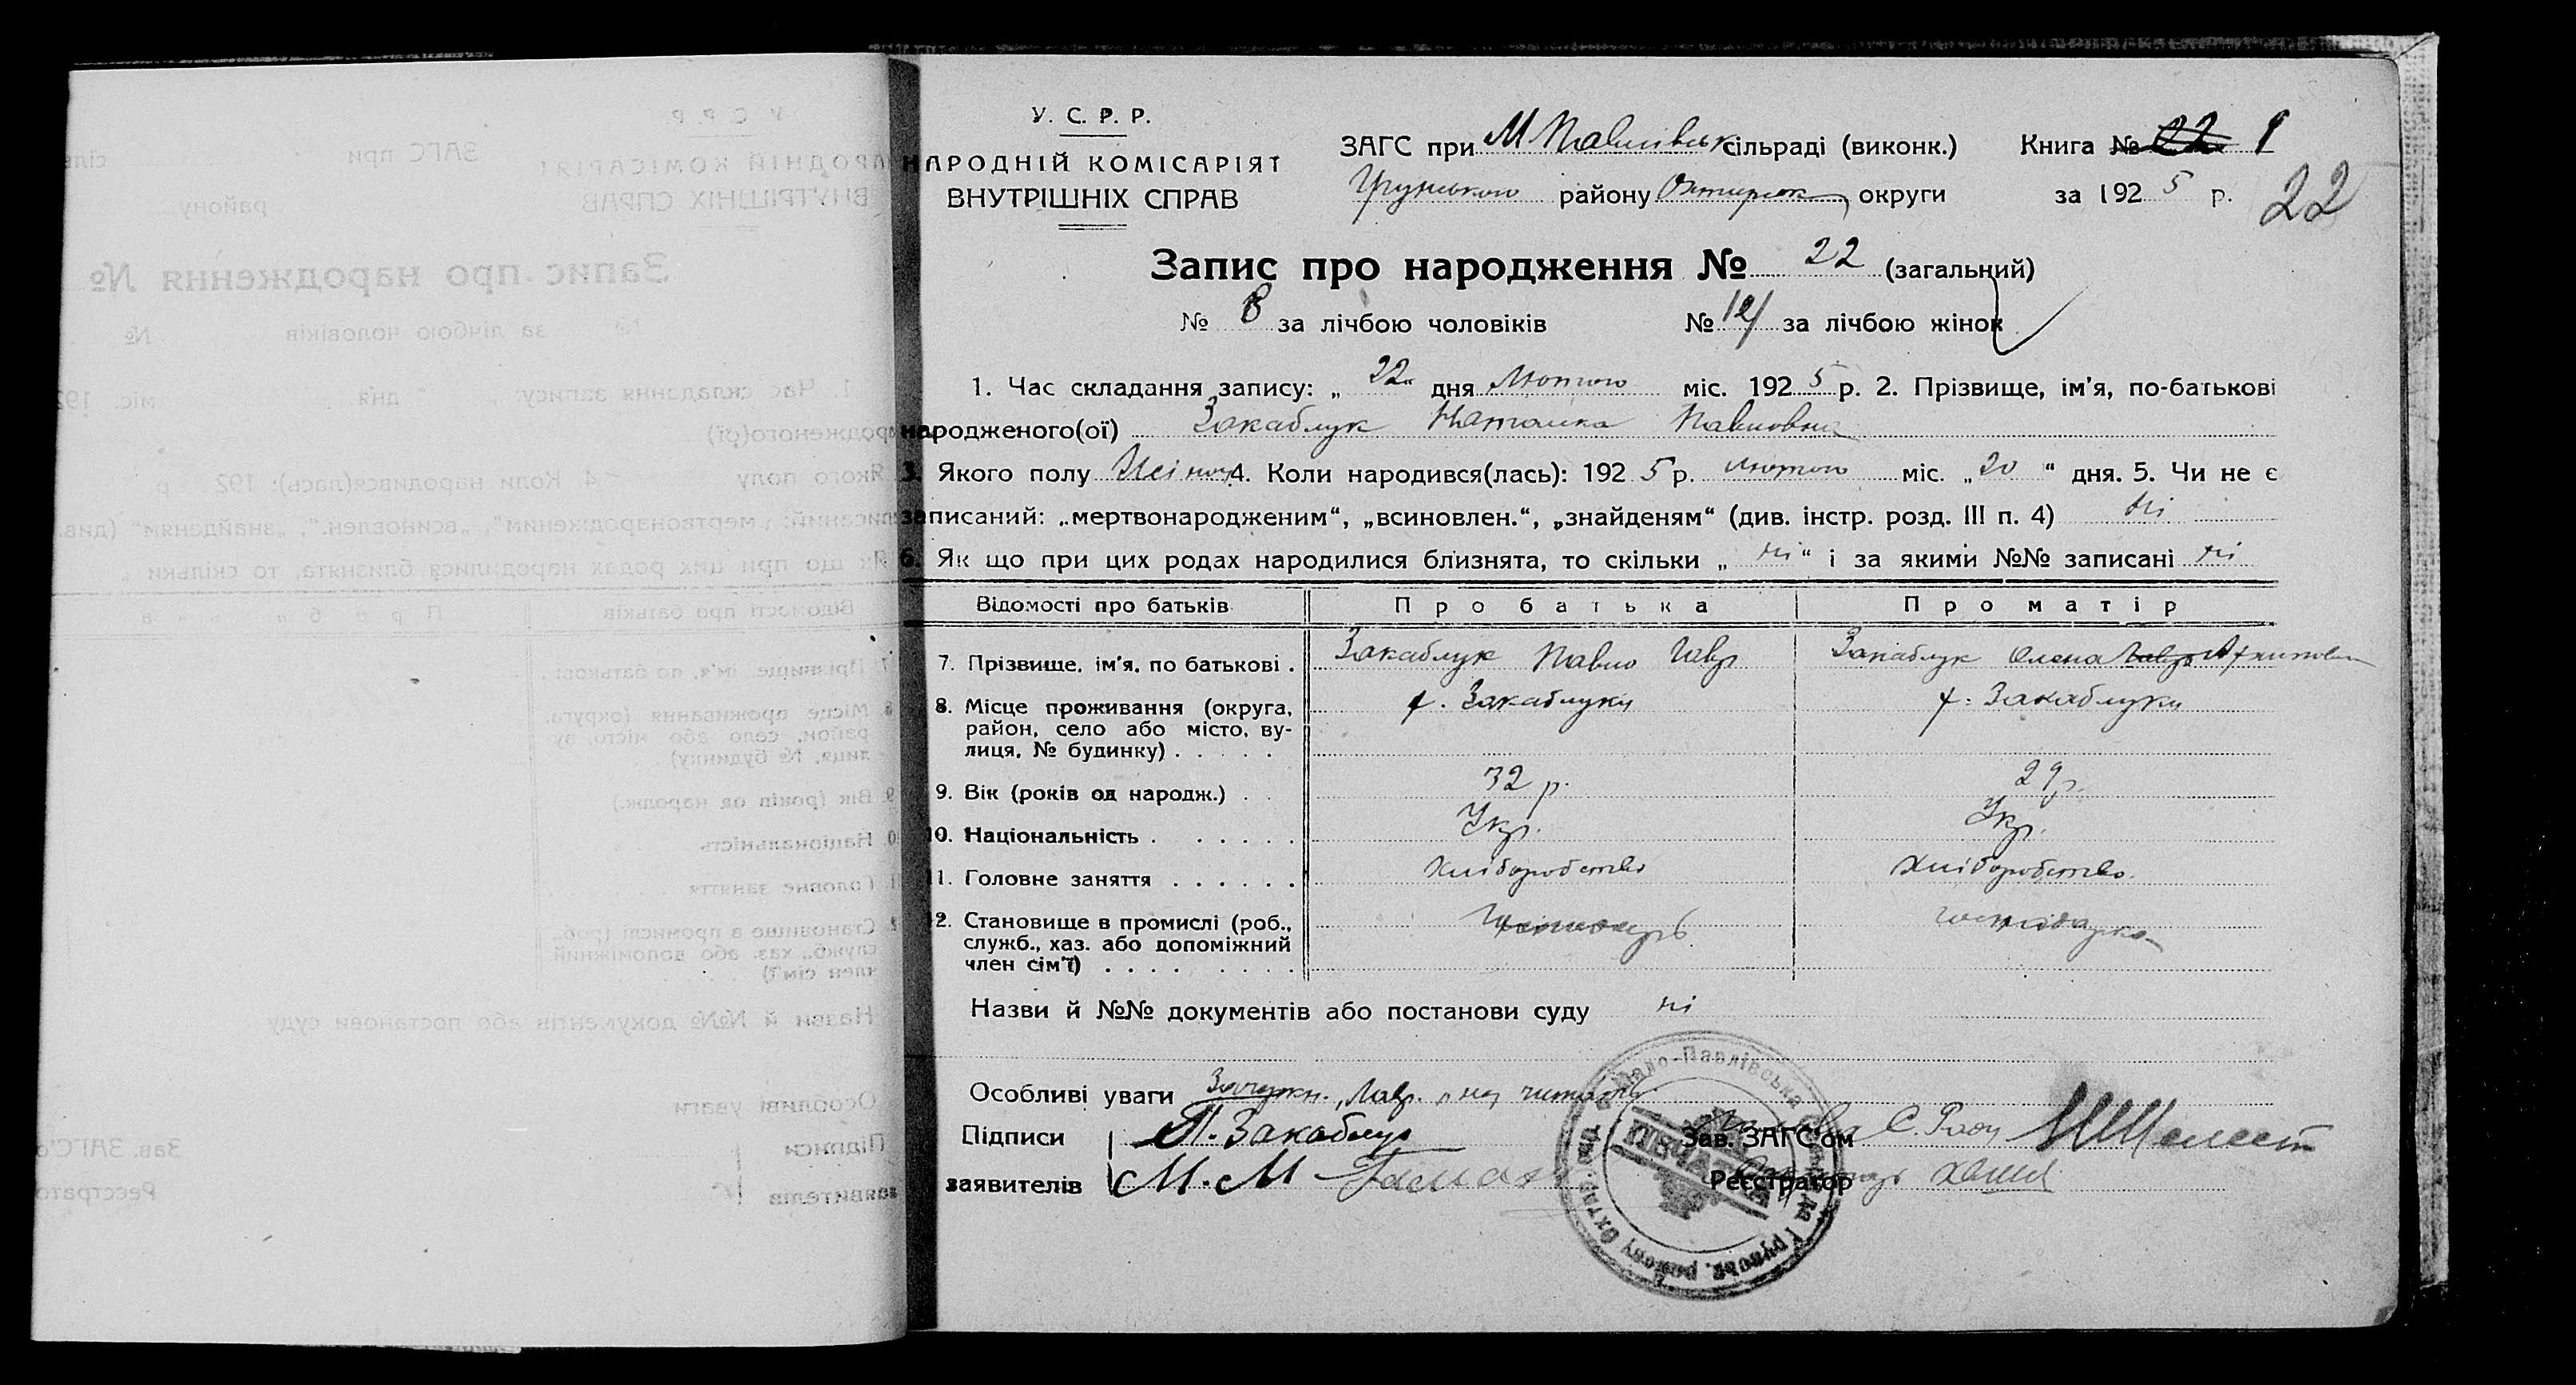 У. С. Р. Р.
НАРОДНІЙ КОМІСАРІЯТ
ВНУТРІШНІХ СПРАВ
ЗАГС при М Павлівськ сільраді (виконк.)
Грунського району Охтирськ округи
Книга № 22 1
за 1925 р.
22
Запис про народження № 22 (загальний)
№ 8 за лічбою чоловіків № 14 за лічбою жінок
1. Час складання запису: „22" дня Лютого міс. 1925 р. 2. Прізвище, ім'я, по-батькові
народженого(ої) Закаблук Наталка Павловна
3. Якого полу Жіноч 4. Коли народився(лась): 1925 р. лютого міс. „20" дня. 5. Чи не є
записаний: „мертвонародженим", „всиновлен.", „знайденям" (див. інстр. розд. III п. 4) ні
6. Як що при цих родах народилися близнята, то скільки „ні" і за якими №№ записані ні
Відомості про батьків Про батька Про матір
7. Прізвище, ім'я, по батькові . Закаблук Павло Гавр Закаблук Олена Гавр
8. Місце проживання (округа, район, село або місто, вулиця, № будинку) . . . . . х. Закаблуки х. Закаблуки
9. Вік (років од народж.) . . 32 р. 29 р.
10. Національність . . . . . . Укр. Укр.
11. Головне заняття . . . . . . Хліборобство Хліборобство
12. Становище в промислі (роб., служб., хаз. або допоміжний член сім'ї) . . . . . . . . Господарь господарка
Назви й №№ документів або постанови суду ні
Особливі уваги Зачеркн. „Гавр." не читать
Підписи П. Закаблук
заявителів М. М
Зав. ЗАГС'ом Голова С. Ради Шелест
Реєстратор Секретарь
Мало-Павлівська Сільрада Грунськ. району Охтир.
ПЕЧАТКА